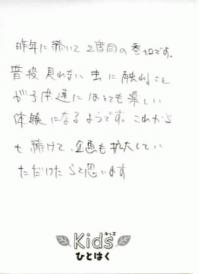 昨年に続いて2度目の参加です。
普段見れない虫に触れること
が子供達にはとても楽しい
体験になるようです。これから
も続けて、企画も拡大してい
ただけたらと思います
Kids
キッズ
ひとはく